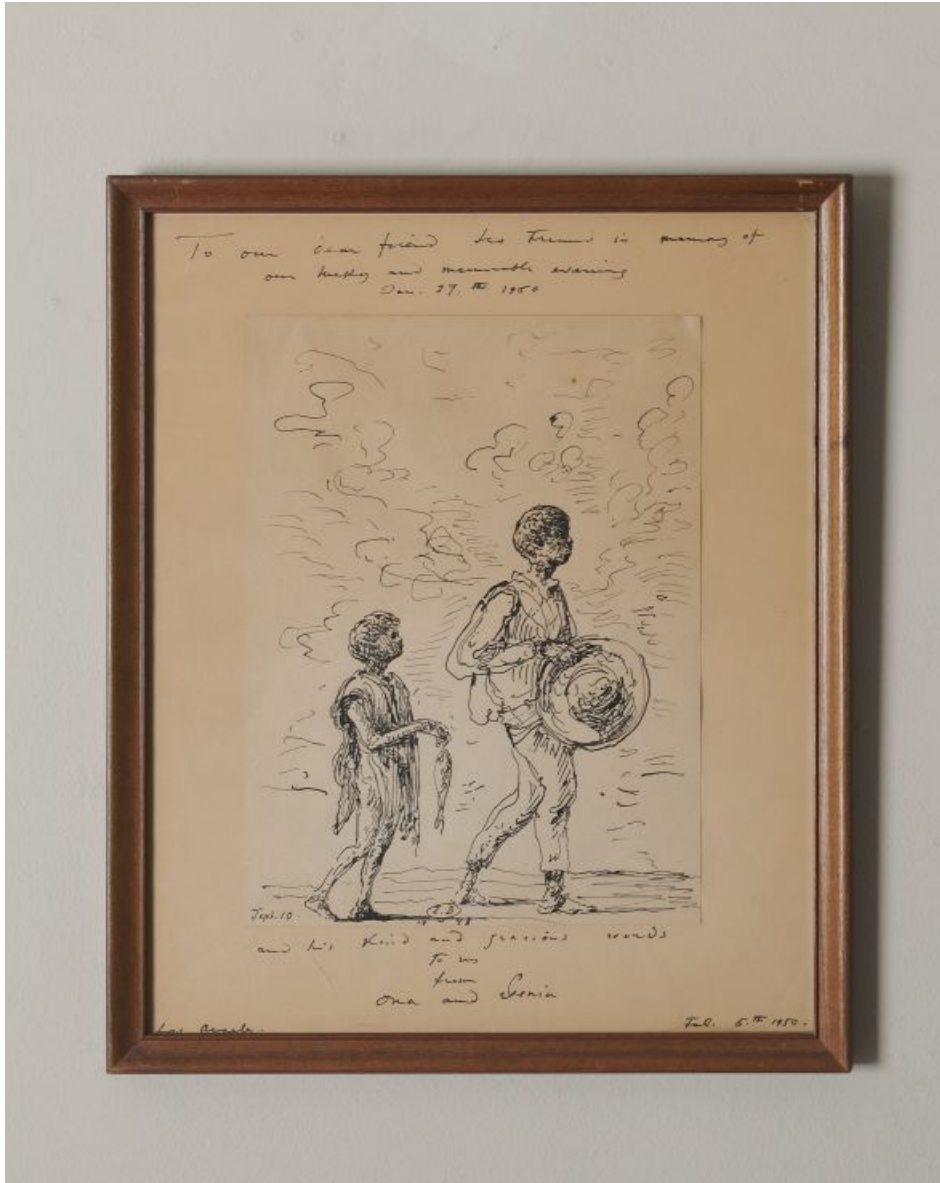 To our dear friend Leo in memory of
our lucky and memorable evening
Jan. 27.th 1950
Sept. 10.
and his kind and gracious words
to us
from
Ona and Genia
Los
Feb. 5.th 1950.